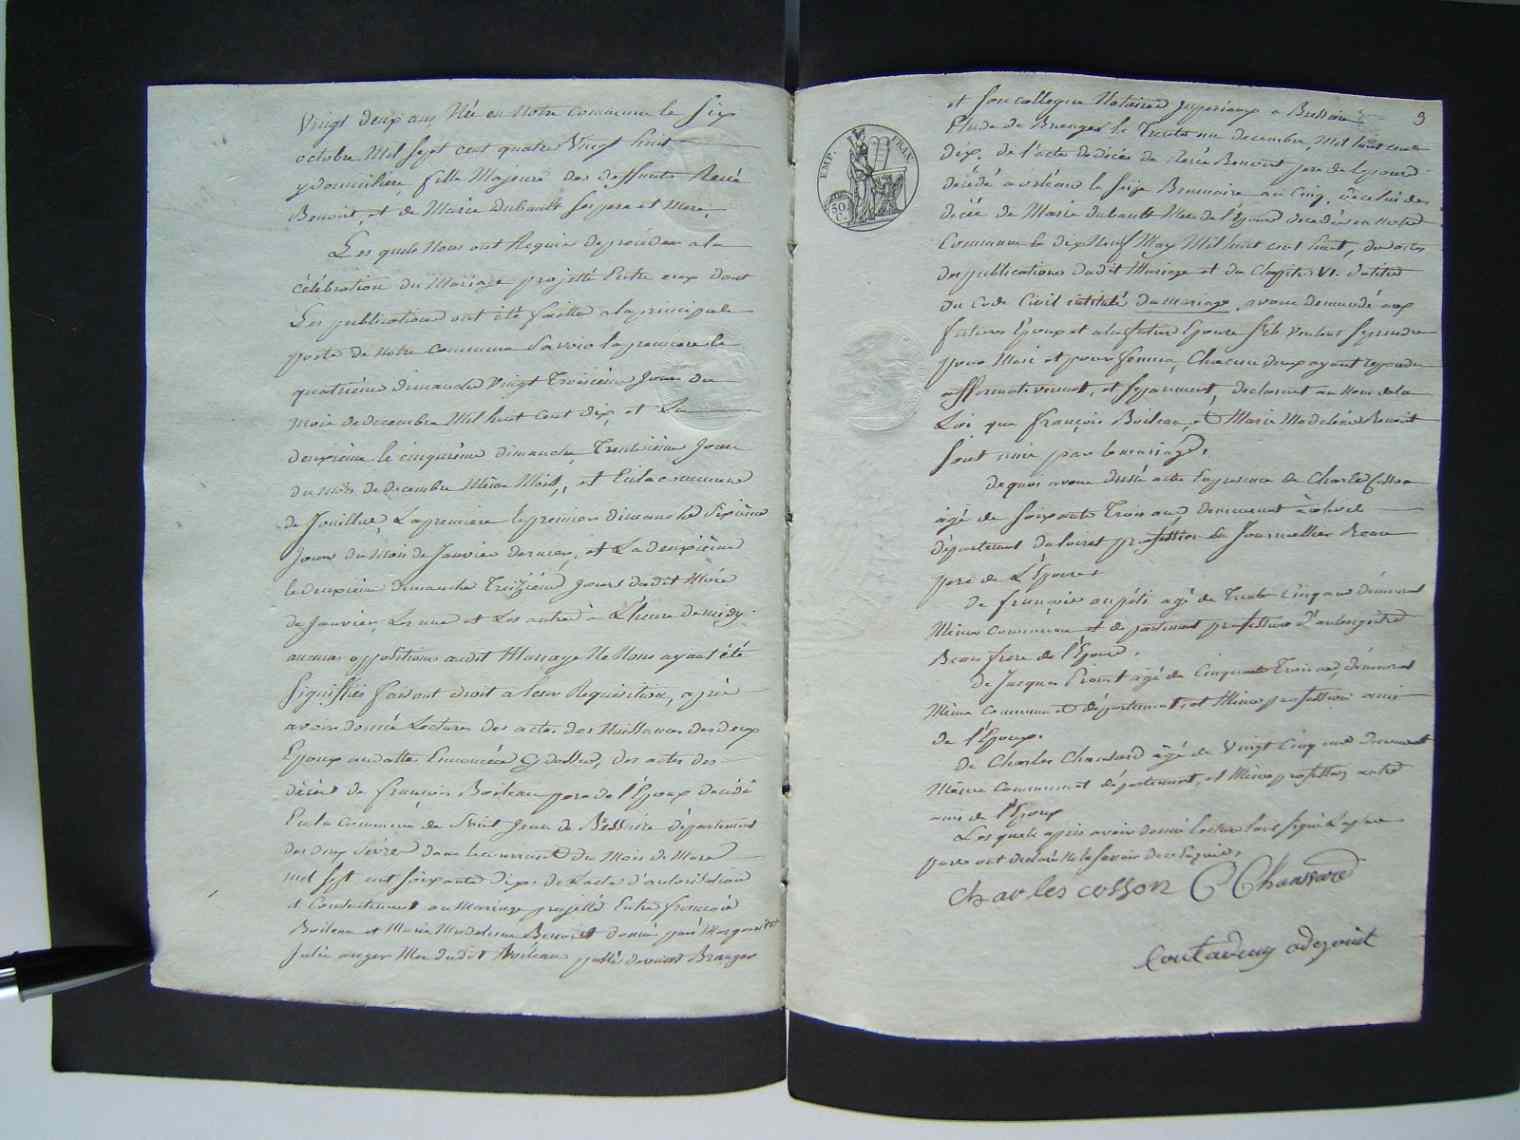 Vingt deux ans Née en Notre commune le Six
octobre Mil Sept cent quatre Vingt huit
y domiciliée fille Majeure des deffunts René
Benoist, et de Marie Dubault Ses pere et Mere,
Lesquels Nous ont Requis de procéder a la
célébration du Mariage projetté Entre eux dont
Les publications ont été faittes a la principale
porte de Notre commune Savoir la premiere le
quatrième dimanche Vingt Troisième Jour du
mois de decembre Mil huit cent dix, et La
deuxième le cinquième dimanche Trentième Jour
du mois de decembre Même Mois, et En la commune
de La premiere le premier dimanche Sixième
Jour du mois de Janvier dernier, et La deuxième
le deuxième dimanche Treizième Jour dudit Mois
de Janvier, Les unes et Les autres à L'heure de midy
aucune opposition audit Mariage Ne Nous ayant été
Signifiée faisant droit a leur Requisition, après
avoir donné Lecture des actes de Naissance des deux
Epoux Enoncés des actes de
décès de François Boileau pere de l'Epoux décédé
En la commune de Saint Jean de département
des deux Sevres dans le du Mois de Mars
mil Sept cent Soixante dix, de L'acte d'autorisation
et Consentement au Mariage projetté Entre françois
Boileau et Marie Madeleine Benoist donné par Marguerite
Julie auger Mere dudit Boileau passé devant
EMP. FRAN.
50
C.
3
et Son collegue Notaires Imperiaux a Bressuire
le Trente un decembre, Mil huit cent
dix, de l'acte de décès de René Benoist pere de Epouse
décédé a orléans le Seize Brumaire an Cinq, de celui de
décès de Marie Dubault Mere de l'Epouse decedée en Notre
Commune le dix Neuf May Mil huit cent huit, des actes
de publications dudit Mariage et du Chapitre VI. du titre
du Code Civil intitulé du mariage, avons demandé aux
futur Epoux et a la future Epouse S'ils veulent Se prendre
pour Mari et pour femme, Chacun d'eux ayant repondu
affirmativement, et Séparément, declarons au Nom de la
Loi que françois Boileau, et Marie Madeleine Benoist
Sont unis par le mariage.
de quoi avons dressé acte En presence de Charles Cosson
âgé de Soixante Trois ans demeurant
département du Loiret profession de Journallier Beau
pere de L'Epouse
de françois agé de Trente Cinq ans demeurant
Même commune et departement profession
Beau frere de l'Epoux.
de Jacques agé de Cinquante Trois ans, demeurant
Même commune et département, et Même profession ami
de l'Epoux.
De Charles Chaussard âgé de Vingt Cinq ans demeurant
Même commune et département, et Même profession aussi
ami de l'Epoux
Lesquels après avoir donné lecture l'ont signé Les
ont declaré Ne le Savoir de ce Enquis.
charles cosson C Chaussard
adejoint